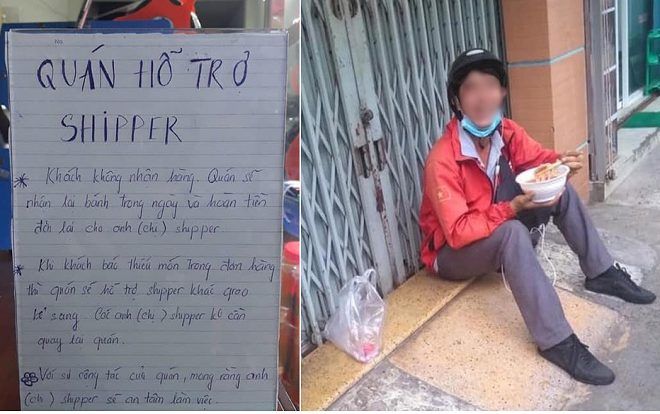 QUÁN HỖ TRỢ
SHIPPER
* Khách không nhận hàng. Quán sẽ
nhận lại bánh trong ngày và hoàn tiền
đổi lại cho anh (chị) shipper
* Khi khách báo thiếu món trong đơn hàng
thì quán sẽ hỗ trợ shipper khác giao
sang. Các anh (chị) shipper ko cần
quay lại quán.
Với sự cộng tác của quán, mong rằng anh
(chị) shipper sẽ an tâm làm việc.